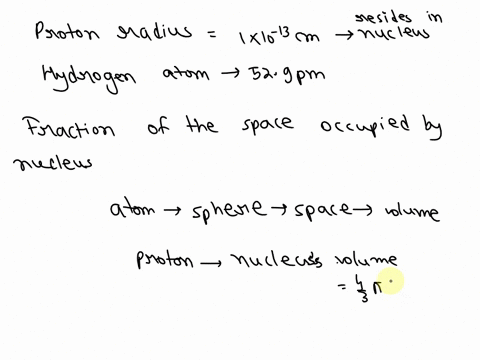 Proton radius = 1×10⁻¹³ cm → resides in nucleus
Hydrogen atom → 52.9pm
Fraction of the space occupied by
nucleus
atom → sphere → space → volume
proton → nucleus's volume
= 4/3 π